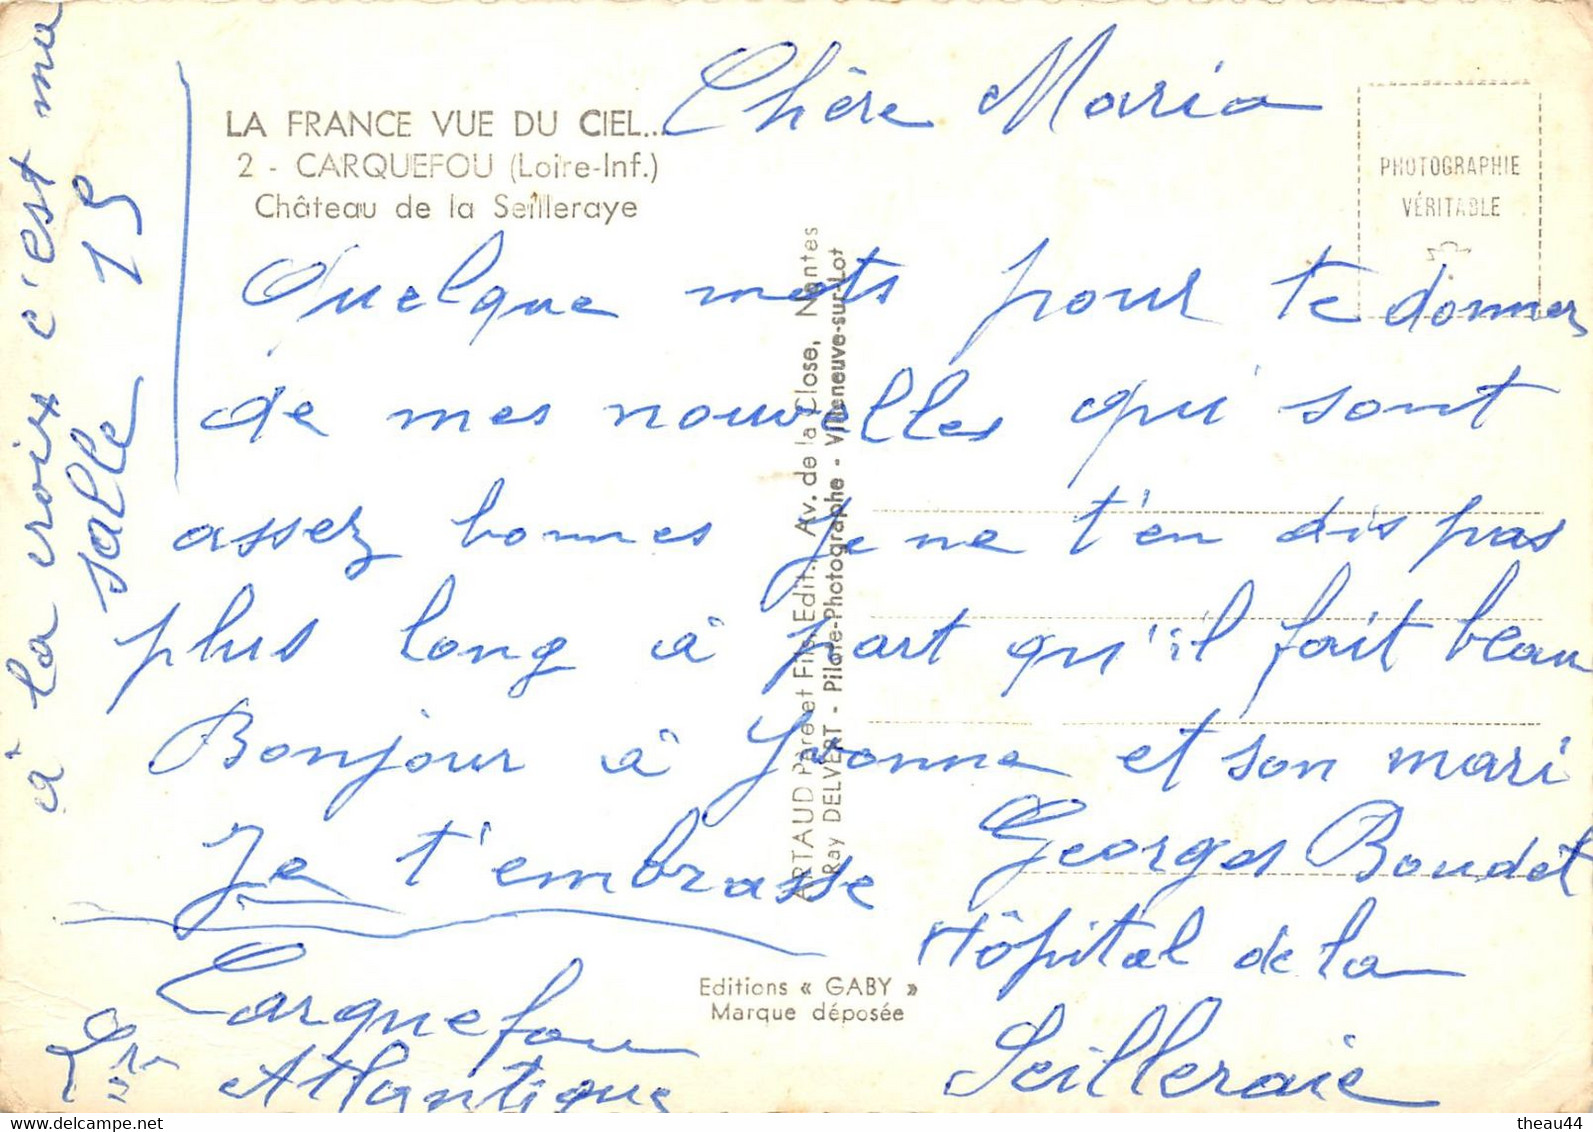 LA FRANCE VUE DU CIEL...
2 - CARQUEFOU (Loire-Inf.)
Château de la Seilleraye
PHOTOGRAPHIE
VÉRITABLE
Chère Maria
Quelque mots pour te donner
de mes nouvelles qui sont
assez bonnes Je ne t'en dis pas
plus long à part qu'il fait beau
Bonjour à Yvonne et son mari
Je t'embrasse
Georges Boudet
Hôpital de la
Seilleraie
Carquefou
Atlantique
à la croix c'est ma
salle 19
ARTAUD Père et Fils, Edit., Av. de la Close, Nantes
Ray DELVERT - Pilote-Photographe - Villeneuve-sur-Lot
Editions « GABY »
Marque déposée
delcampe.net
theau44